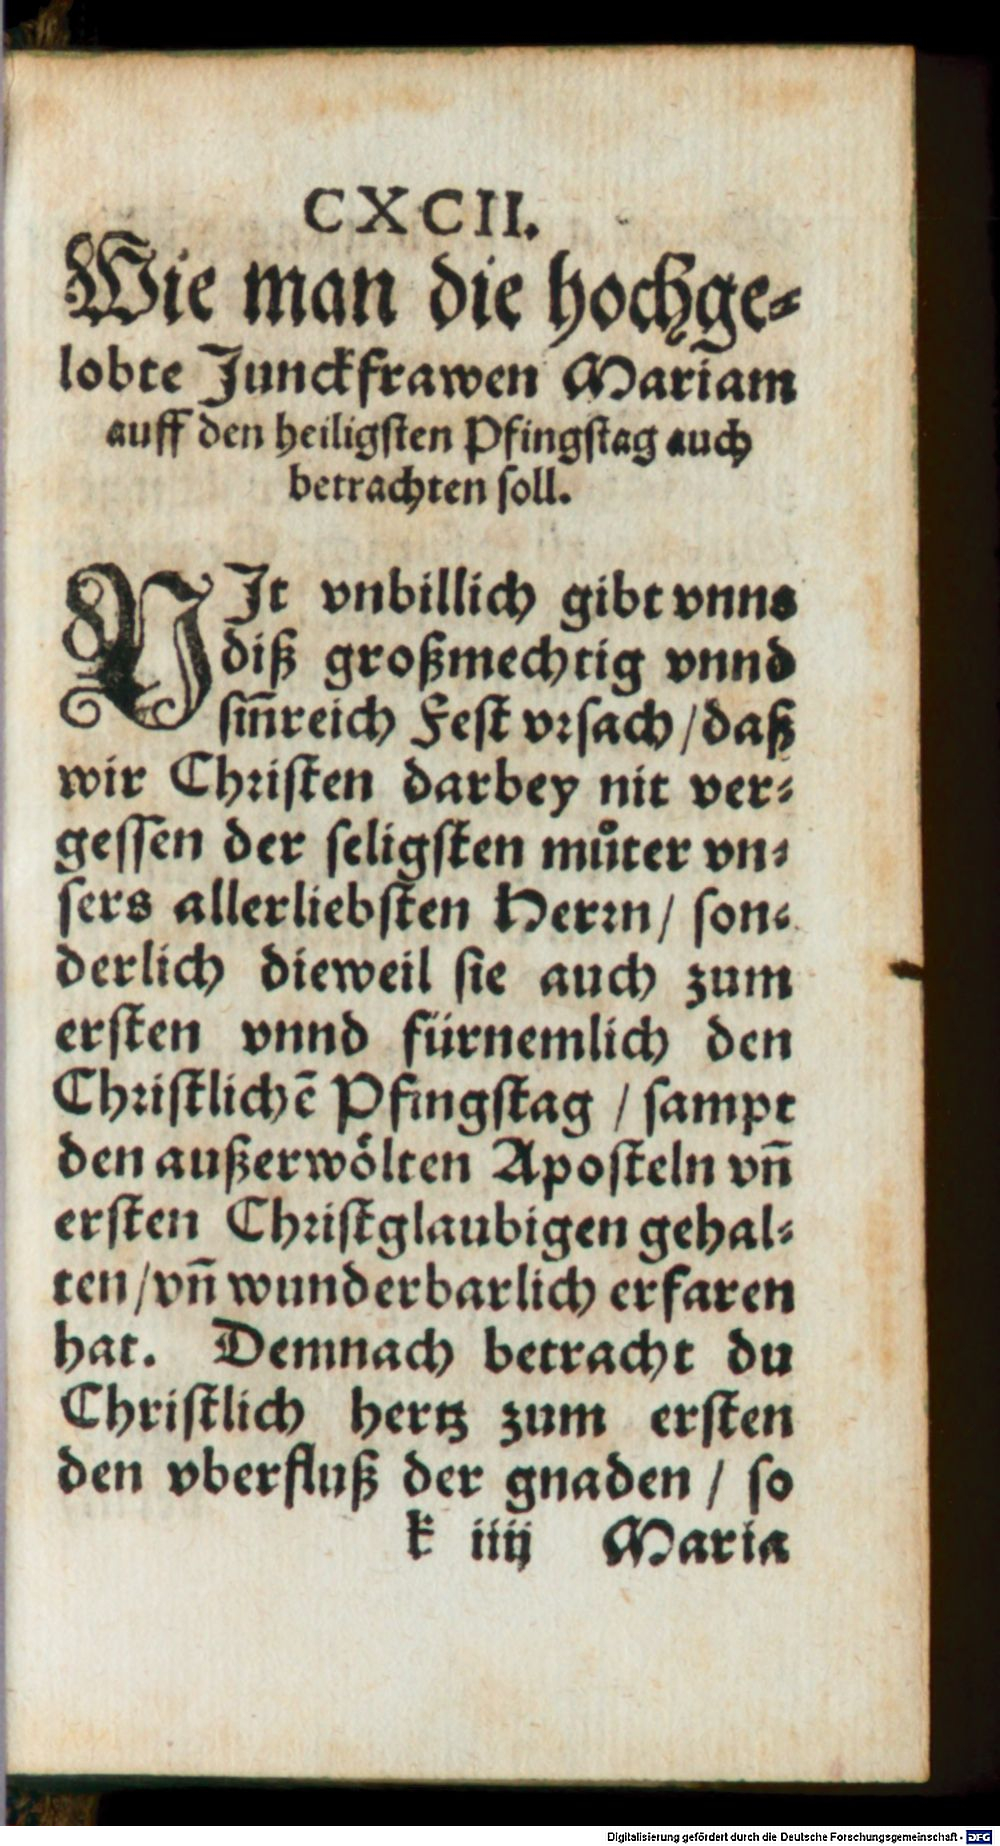 CXCII.
Wie man die hochge⸗
lobte Junckfrawen Mariam
auff den heiligsten Pfingstag auch
betrachten soll.
NIt vnbillich gibt vnns
diß großmechtig vnnd
sin̄reich Fest vrsach / daß
wir Christen darbey nit ver⸗
gessen der seligsten můter vn⸗
sers allerliebsten Herrn / son⸗
derlich dieweil sie auch zum
ersten vnnd fürnemlich den
Christlichē Pfingstag / sampt
den außerwölten Aposteln vn̄
ersten Christglaubigen gehal⸗
ten / vn̄ wunderbarlich erfaren
hat. Demnach betracht du
Christlich hertz zum ersten
den vberfluß der gnaden / so
k iiij Maria
Digitalisierung gefördert durch die Deutsche Forschungsgemeinschaft - DFG